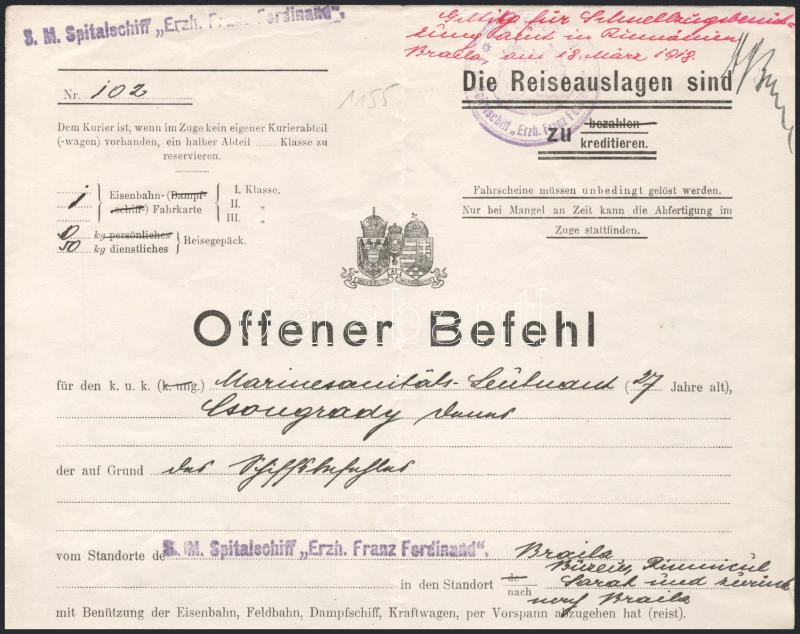 S. M. Spitalschiff „Erzh. Franz Ferdinand".
Giltig für Schnellzugsbenüt-
zung in Rumänien
Braila, am 18. März 1918.
Nr. 102
1155
Die Reiseauslagen sind
zu bezahlen
kreditieren.
Dem Kurier ist, wenn im Zuge kein eigener Kurierabteil
(-wagen) vorhanden, ein halber Abteil ........ Klasse zu
reservieren.
Fahrscheine müssen unbedingt gelöst werden.
Nur bei Mangel an Zeit kann die Abfertigung im
Zuge stattfinden.
1 Eisenbahn-(Dampf-
schiff-) Fahrkarte
I. Klasse.
II. „
III. „
10 kg persönliches
50 kg dienstliches
Reisegepäck.
Offener Befehl
für den k. u. k. (k. ung.) Marinesanitäts-Leutnant (27 Jahre alt),
Csongrady Denes
der auf Grund des Schiffsbefehles
vom Standorte de S. M. Spitalschiff „Erzh. Franz Ferdinand". Braila
in den Standort de
nach
Buzeu, Rimnicul
Sarat und zurück
nach Braila
mit Benützung der Eisenbahn, Feldbahn, Dampfschiff, Kraftwagen, per Vorspann abzugehen hat (reist).